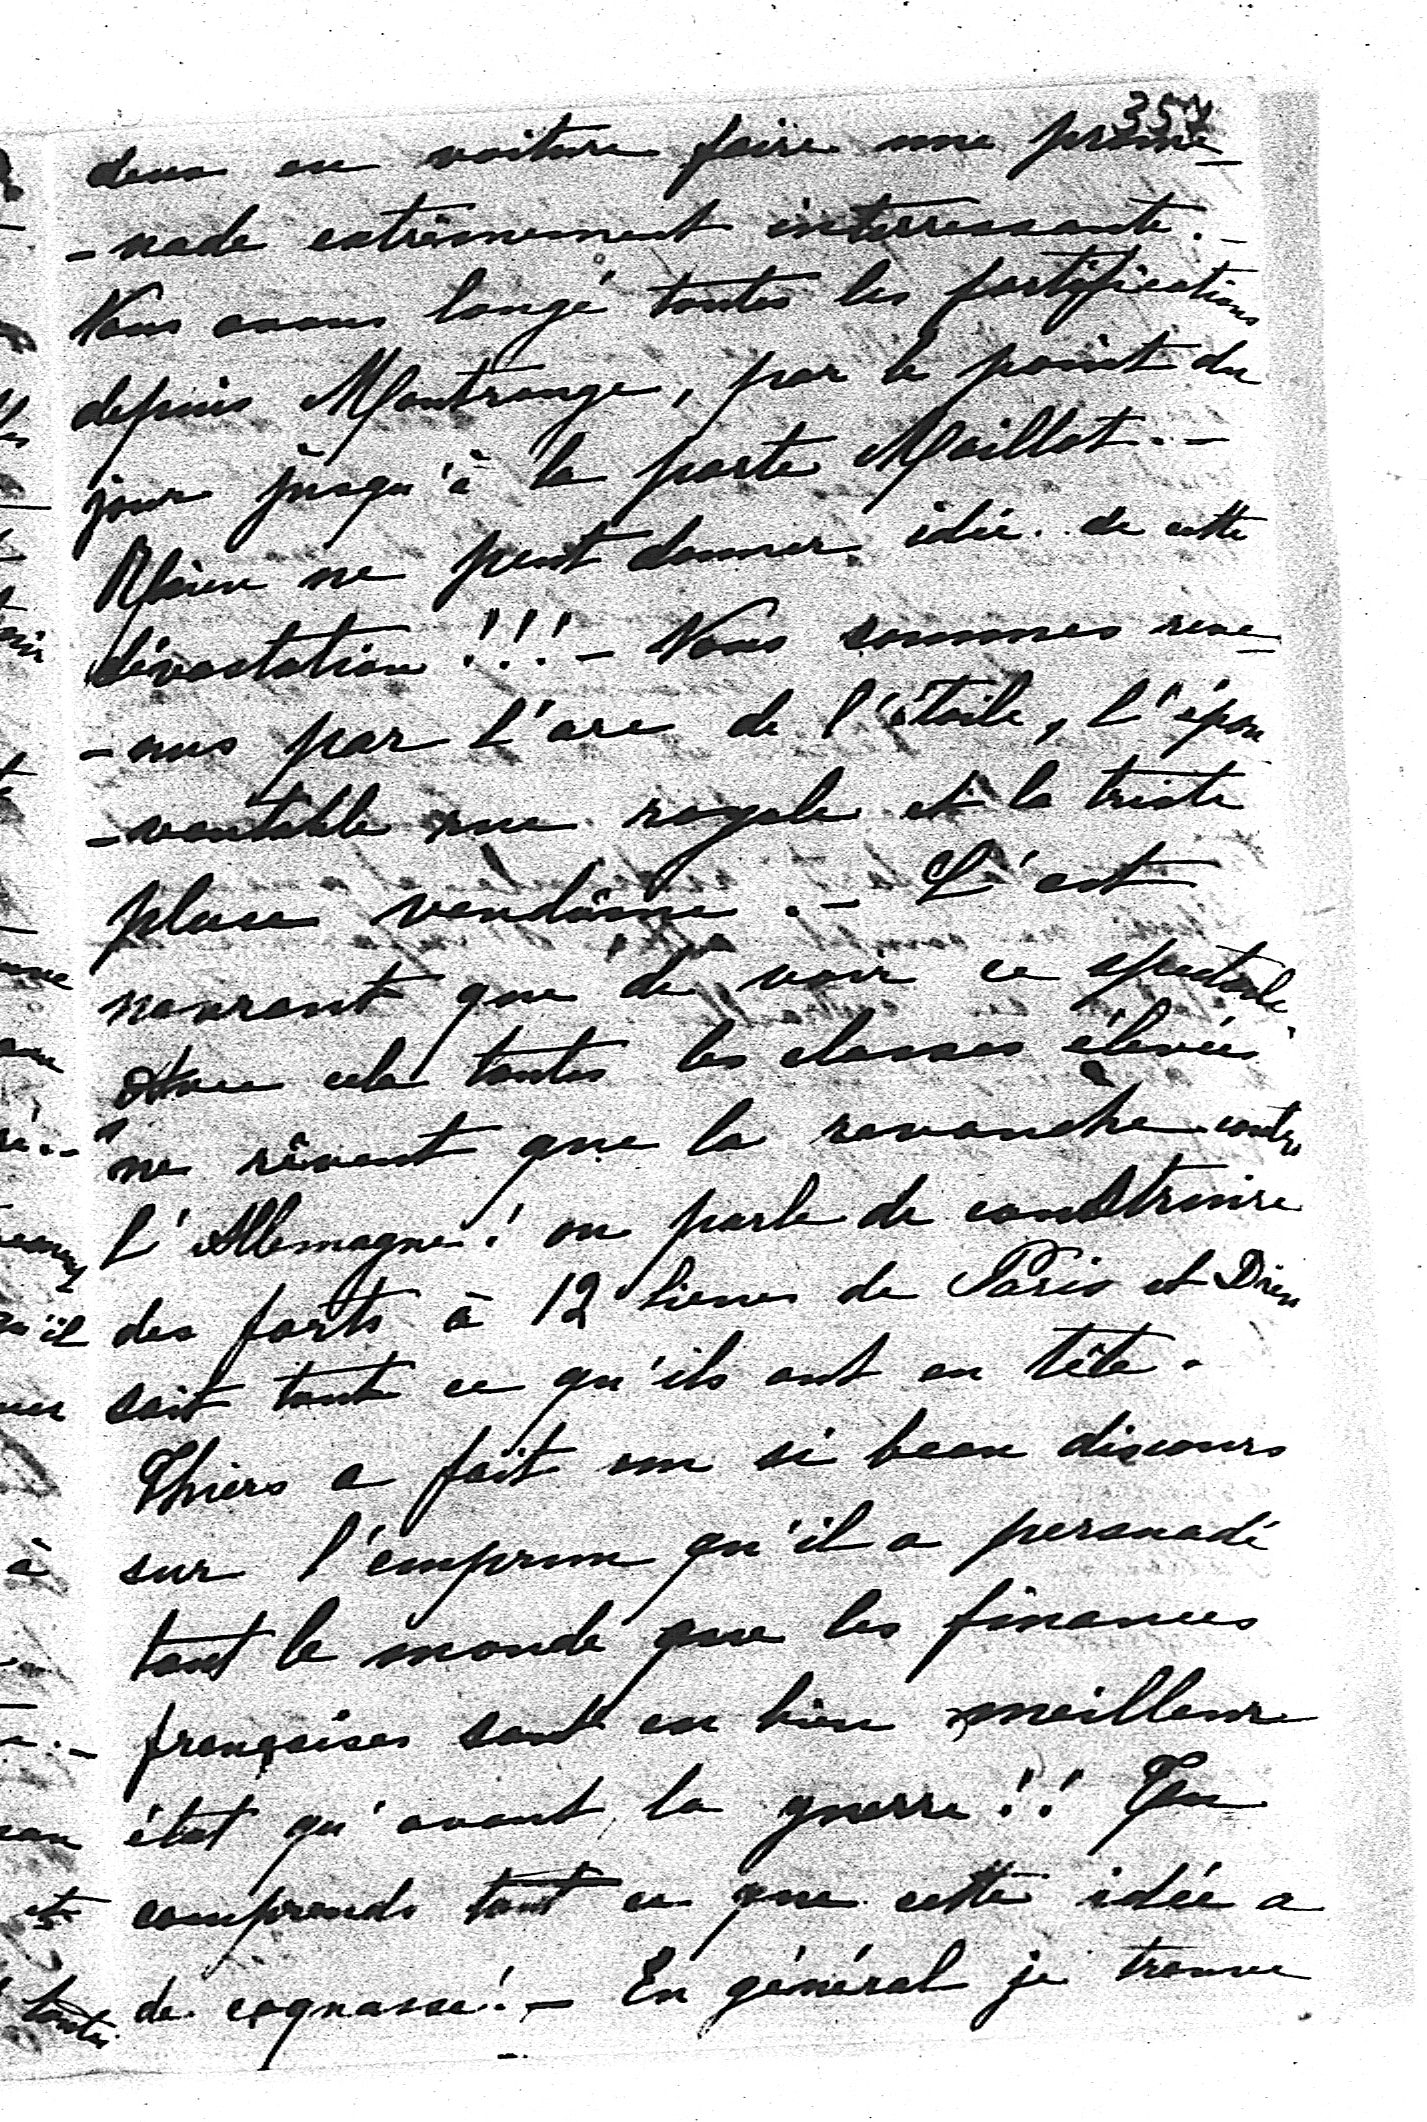 354
deux en voiture faire une prome-
-nade extrêmement interressante.-
Nous avons longé toutes les fortifications
depuis Montrouge, par le point du
jour jusqu'à la porte Maillot.-
Rien ne peut donner idée de cette
dévastation!!!- Nous sommes reve-
-nus par l'arc de l'étoile, l'épou
-vantable rue royale et la triste
place vendôme.- C'est
navrant que de voir ce spectacle.
Avec cela toutes les classes élevées
ne rêvent que la revanche contre
l'Allemagne! on parle de construire
des forts à 12 lieues de Paris et Dieu
sait tout ce qu'ils ont en tête.
Thiers a fait un si beau discours
sur l'emprun qu'il a persuadé
tout le monde que les finances
françaises sont en bien meilleur
état qu'avant la guerre!! Tu
comprends tout ce que cette idée a
de cognasse!- En général je trouve